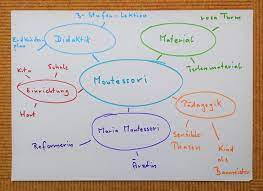 3-Stufen-Lektion
rosa Turm
Erdkinder-
plan
Didaktik
Material
Schule
Kita
Montessori
Perlenmaterial
Einrichtung
Pädagogik
Hort
Maria Montessori
Sensible
Phasen
Kind
als
Baumeister
Reformerin
Ärztin